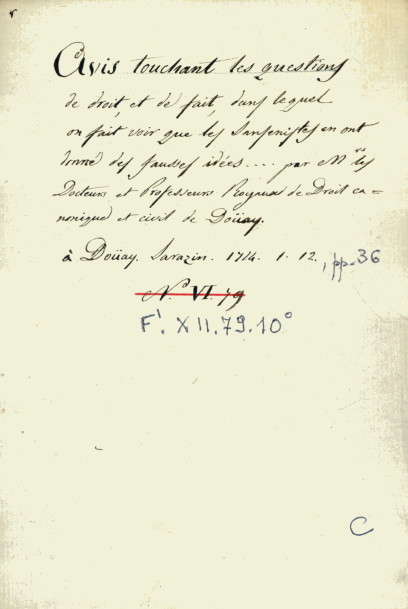 Avis touchant les questions
de droit, et de fait, dans lequel
on fait voir que les Jansenistes en ont
donné des fausses idées.... par Mrs les
Docteurs et Professeurs Royaux de Droit ca=
nonique et civil de Doüay.
à Doüay. Sarazin. 1724. 1. 12., pp. 36
N.o VI. 79
F1. XII.79.10°
C